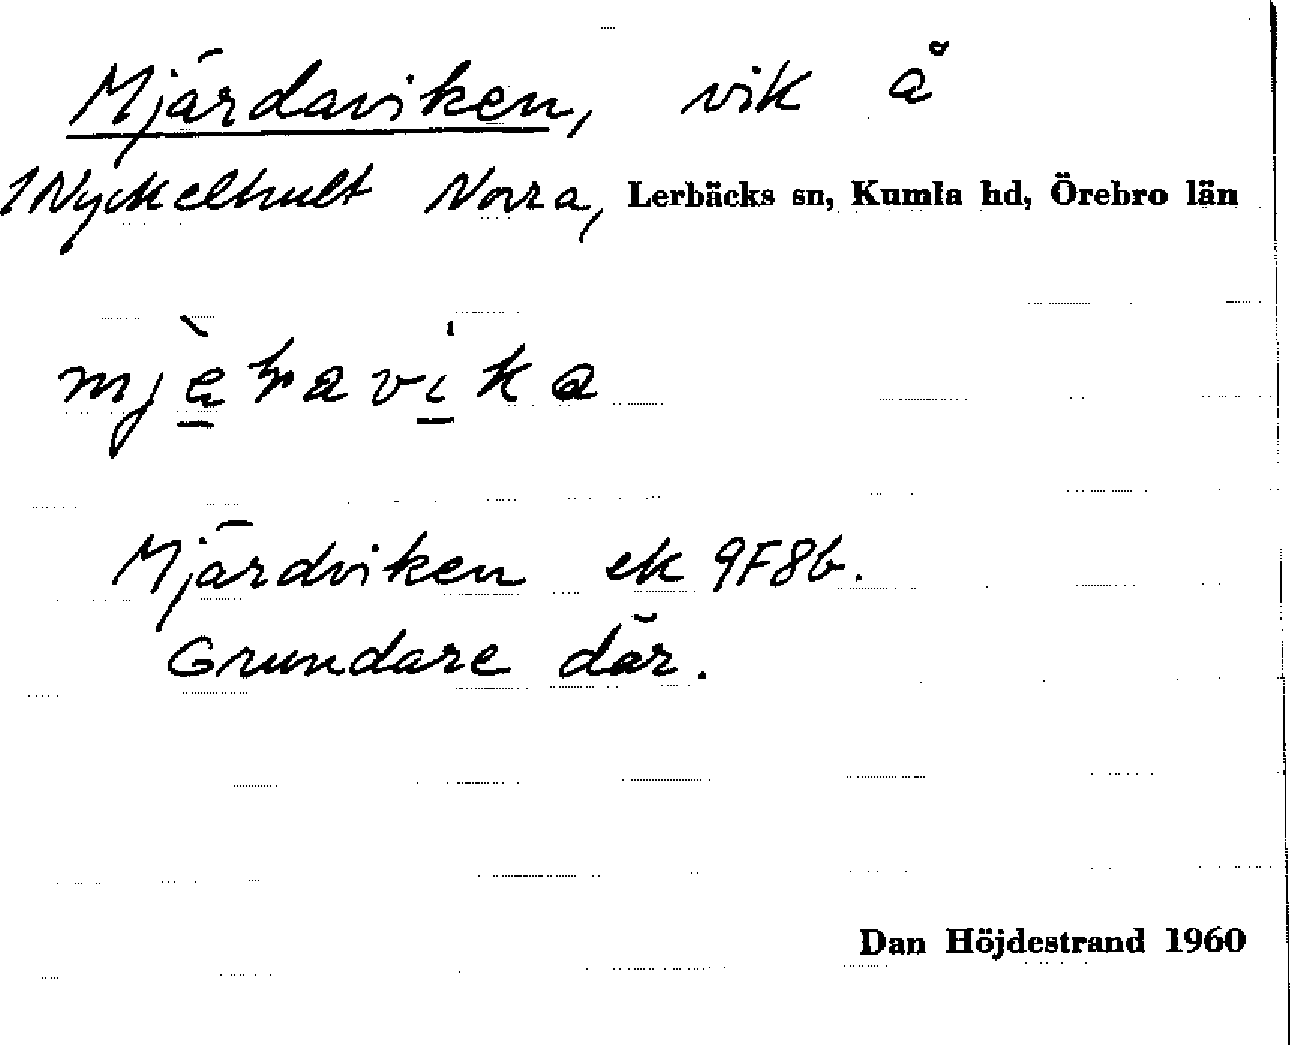 Mjärdaviken, vik å
1Nyckelhult Norra, Lerbäcks sn, Kumla hd, Örebro län
Mjärdviken ek 9F8b.
Grundare där.
Dan Höjdestrand 1960